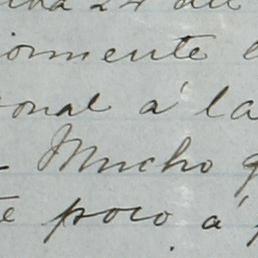 24 del
ormente
onal á la
Mucho
te poco á